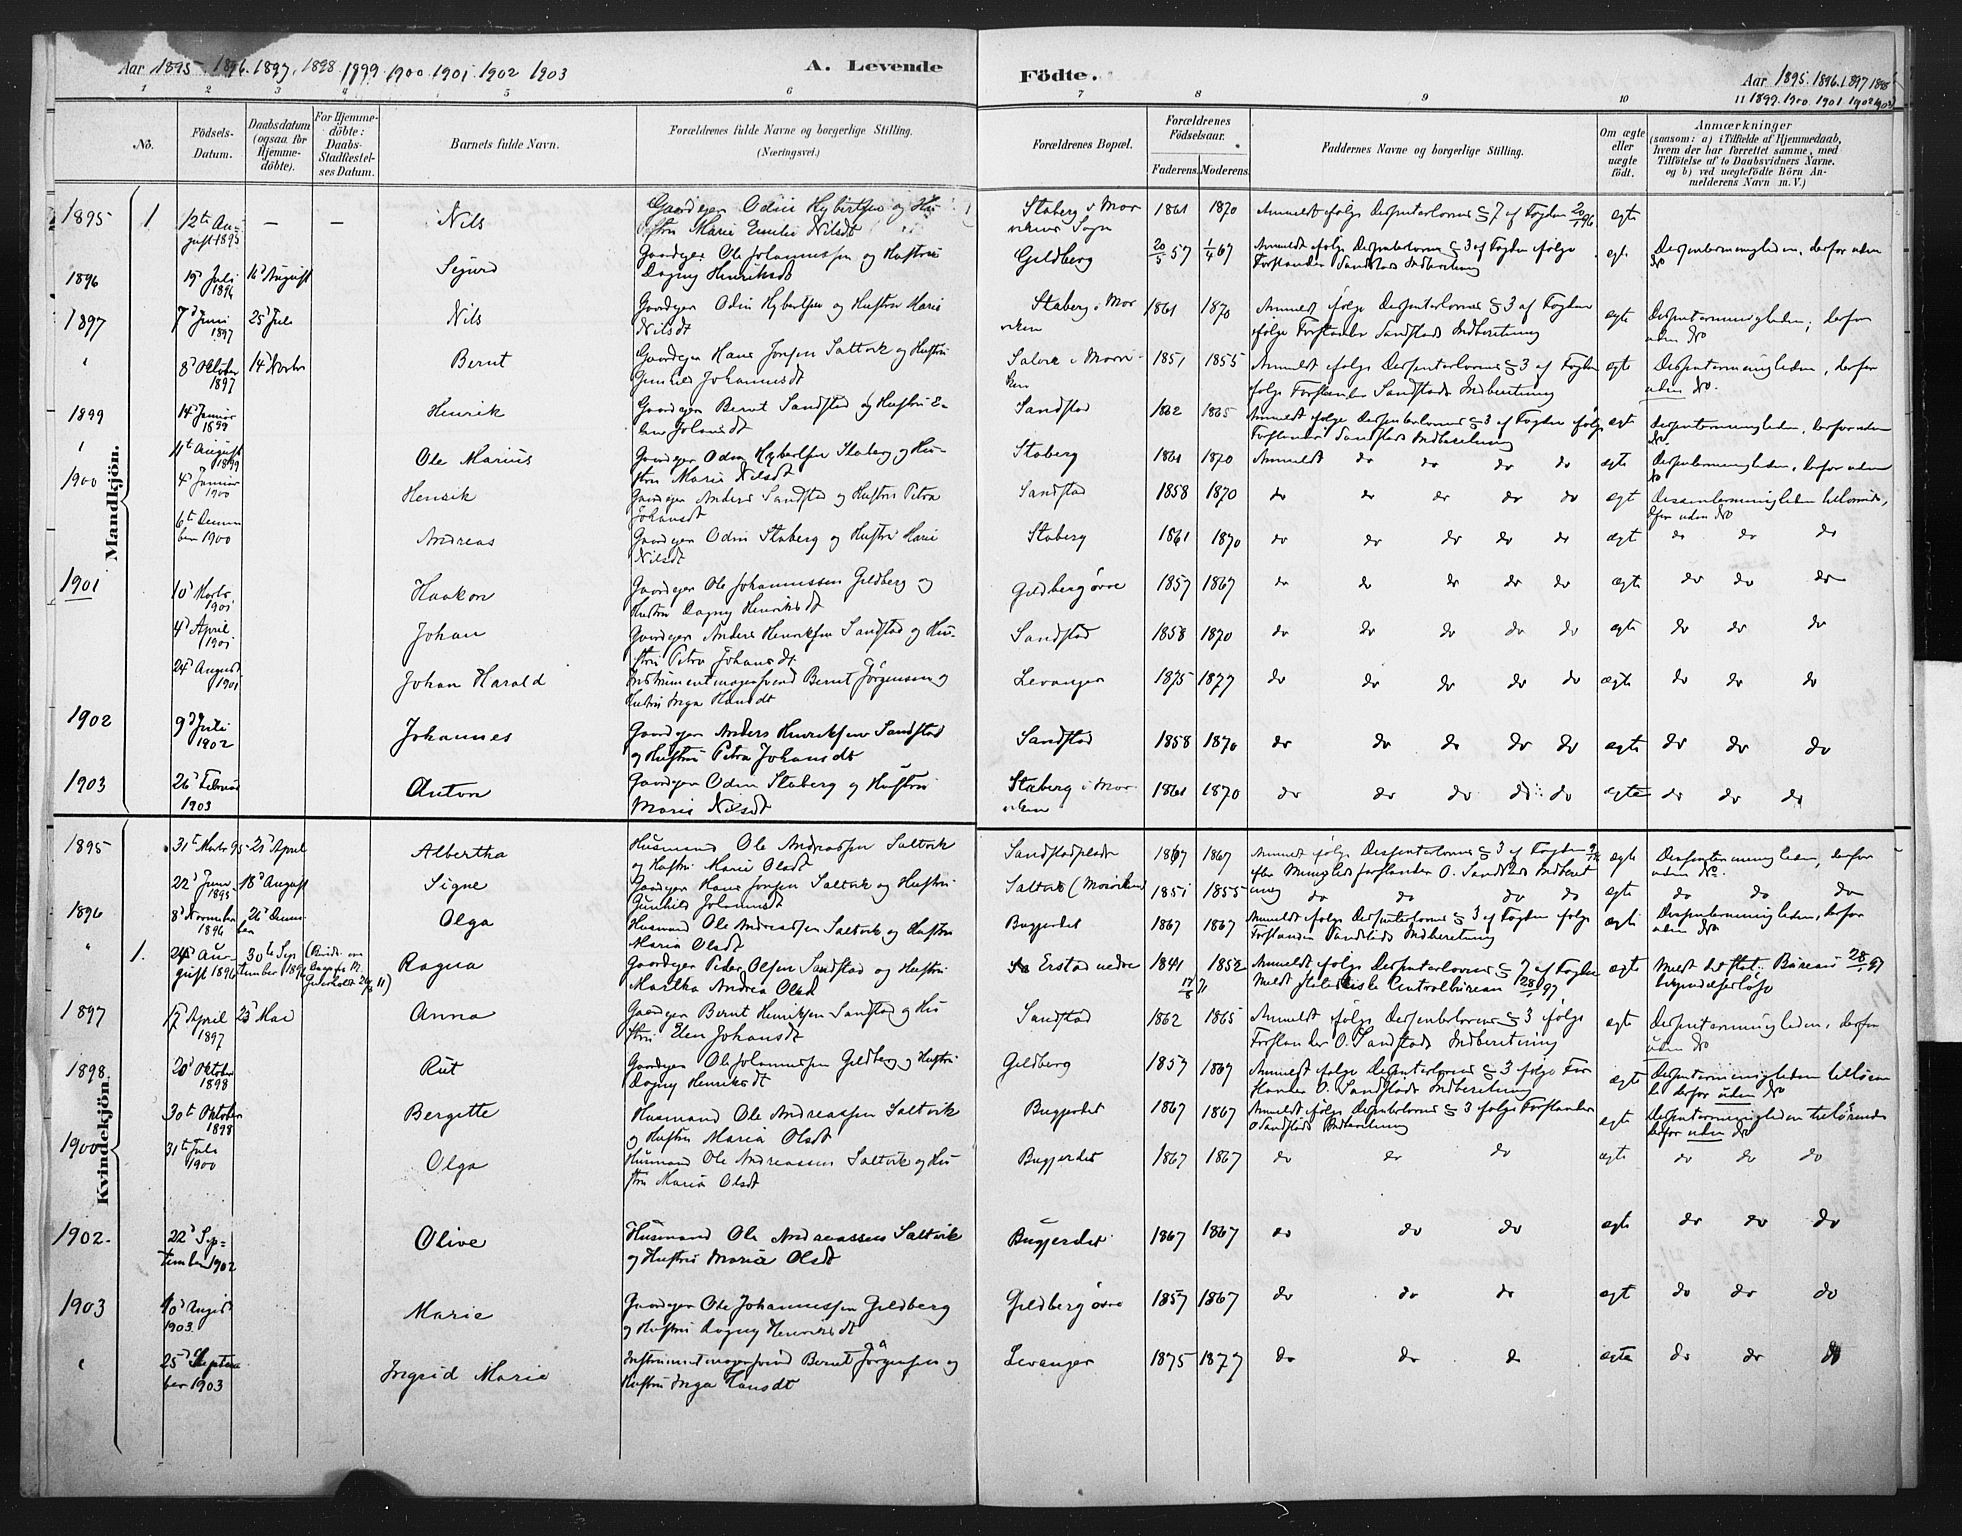 Aar 1895. 1896. 1897. 1898 1899. 1900. 1901. 1902 1903
A. Levende
Födte.
Aar 1895. 1896. 1897 1898
1899. 1900. 1901 1902 1903
1 2 3 4 5 6 7 8 9 10 11
No.
Födsels-
Datum.
Daabsdatum
(ogsaa for
Hjemme-
döbte).
For Hjemme-
döbte:
Daabs-
Stadfæstel-
ses Datum.
Barnets fulde Navn.
Forældrenes fulde Navne og borgerlige Stilling.
(Næringsvei.)
Forældrenes Bopæl.
Forældrenes
Födselsaar.
Faderens. Moderens.
Faddernes Navne og borgerlige Stilling.
Om ægte
eller
uægte
födt.
Anmærkninger
(saasom: a) i Tilfælde af Hjemmedaab,
hvem der har forrettet samme, med
Tilföielse af to Daabsvidners Navne.
og b) ved uægtefödte Börn An-
melderens Navn m. V.)
Mandkjön.
1895 1 12te August 1895 — — Nils Gaardejer Odin Hybertsen og Hu-
stru Marie Nilsdt Staberg i Mor
vikens Sogn 1861 1870 Anmeldt ifølge Dissenterlovens § 7 af Fogden ægte
1896 15 Juli 1896 16 August Sigurd Gaardejer Ole Johannessen og Hustru
Dagny Henriksdt Geldberg 20/5 57 1/4 67 Anmeldt ifølge Dissenterlovens § 3 af Fogden ifølge
Forstander Sandstads Indberetning ægte Dissentermenigheden, derfor uden
No
1897 7 Juni 1897 25 Juli Nils Gaardejer Odin Hybertsen og Hustru Marie
Nilsdt Staberg i Mor
viken 1861 1870 Anmeldt ifølge Dissenterlovens § 3 af Fogden
ifølge Forstander Sandstads Indberetning ægte Dissentermenigheden, derfor
uden No
" 8 Oktober 1897 14 Novbr Bernt Gaardejer Hans Jonsen Saltvik og Hustru
Gunhild Johannesdt 1851 1855 Anmeldt ifølge Dissenterlovens § 3 af Fogden
ifølge Forstander Sandstads Indberetning ægte Dissentermenigheden, derfor
uden No.
1899 14 Januar 1899 Henrik Gaardejer Bernt Sandstad og Hustru E-
len Johansdt Sandstad 1862 1865 Anmeldt ifølge Dissenterlovens § 3 af Fogden ifølge
Forstander Sandstads Indberetning ægt Dissentermenigheden, derfor uden
No
" 11te August 1899 Ole Marius Gaardejer Odin Hybertsen Staberg og Hu-
stru Marie Nilsdt Staberg 1861 1870 Anmeldt do do do do ægte Dissentermenigheden, derfor uden
No
1900 4 Januar 1900 Henrik Gaardejer Anders Sandstad og Hustru Petra
Johansdt Sandstad 1858 1870 do do do do do ægt Dissentermenigheden
derfor uden No
6te Decem
ber 1900 Andreas Gaardejer Odin Staberg og Hustru Marie
Nilsdt Staberg 1861 1870 do do do do do ægt do do do
1901 10 1901 Haakon Gaardejer Ole Johannessen Geldberg og
Hustru Dagny Henriksdt Geldberg øvre 1857 1867 do do do do do ægte do do do
4 April 1901 Johan Gaardejer Anders Henriksen Sandstad og Hu-
stru Petra Johansdt Sandstad 1858 1870 do do do do do ægte do do do
24 August 1901 Johan Harald Instrumentmagersvend Bernt Jørgensen og
Hustru Inga Hansdt Levanger 1875 1877 do do do do do ægte do do do
1902 9 Juli 1902 Johannes Gaardejer Anders Henriksen Sandstad
og Hustru Petra Johansdt Sandstad 1858 1870 do do do do do ægte do do do
1903 26 Februar 1903 Anton Gaardejer Odin Staberg og Hustru
Marie Nilsdt Staberg i Mor
viken 1861 1870 do do do do do ægte do do do
Kvindekjön.
1895 31te 95 21 April Albertha Husmand Ole Andreassen Saltvik
og Hustru Maria Olsdt Sandstadplads 1867 1867 Anmeldt ifølge Dissenterlovens § 3 af Fogden
efter Menighedsforstander O. Sandstads Indberet
ning ægte Dissentermenigheden, derfor
uden No.
22 Juni 1895 18 August Signe Gaardejer Hans Jonsen Saltvik og Hustru
Gunhild Johannesdt Saltvik (Morviken) 1851 1855 do do do do ægte do do do
1896 8 November 1896 26 Decem
ber Olga Husmand Ole Andreassen Saltvik og Hustru
Maria Olsdt Bugjerdet 1867 1867 Anmeldt ifølge Dissenterlovens § 3 af Fogden ifølge
Forstander Sandstads Indberetning ægte Dissentermenigheden, derfor
uden No
" 1. 24 Au-
gust 1896 30te Sep
tember 1896 Ragna Gaardejer Peder Olsen Sandstad og Hustru
Martha Andrea Olsd Erstad nedre 1841 1852 Anmeldt ifølge Dissenterlovens § 7 af Fogden
Meldt statistiske Centralbureau 28/1 97 ægte Meldt det stat: Bureau 28/1 97
1897 17 April 1897 23 Mai Anna Gaardejer Bernt Henriksen Sandstad og Hu
stru Elen Johansdt Sandstad 1862 1865 Anmeldt ifølge Dissenterlovens § 3 ifølge
Forstander O. Sandstads Indberetning ægte Dissentermenigheden, derfor
uden No
1898 20 Oktober 1898 Rut Gaardejer Ole Johannessen Geldberg og Hustru
Dagny Henriksdt Geldberg 1857 1867 Anmeldt ifølge Dissenterlovens § 3 ifølge For
stander O. Sandstads Indberetning ægte Dissentermenigheden tilhøren
de derfor uden No
30te Oktober 1898 Bergitte Husmand Ole Andreassen Saltvik
og Hustru Maria Olsdt Bugjerdet 1867 1867 Anmeldt ifølge Dissenterlovens § 3 ifølge Forstander
O Sandstads Indberetning ægte Dissentermenigheden tilhørende
derfor uden No
1900 31te Juli 1900 Olga Husmand Ole Andreassen Saltvik og Hu
stru Maria Olsdt Bugjerdet 1867 1867 do do do ægte do do do
1902. 22 Sep-
tember 1902 Olive Husmand Ole Andreassen Saltvik
og Hustru Maria Olsdt Bugjerdet 1867 1867 do do do ægte do do do
1903 10 August 1903. Marie Gaardejer Ole Johannessen Geldberg
og Hustru Dagny Henriksdt Geldberg øvre 1857 1867 do do do ægt do do do
" 25 Septem
ber 1903 Ingrid Marie Instrumentmagersvend Bernt Jørgensen og
Hustru Inga Hansdt Levanger 1875 1877 do do do ægte do do do